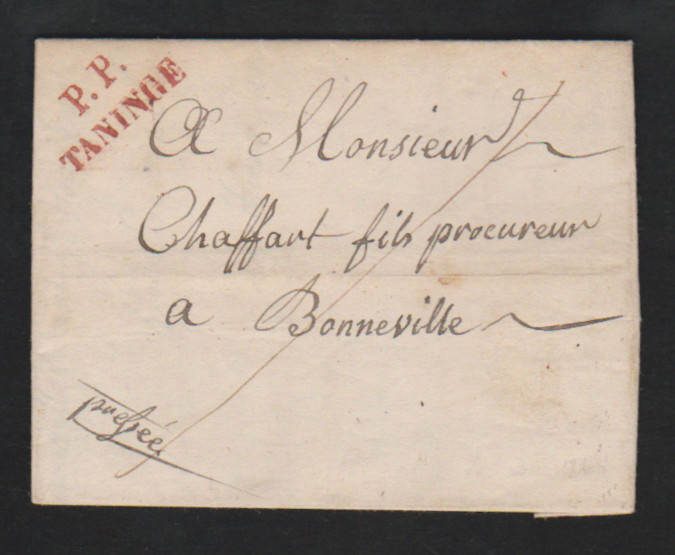 P. P.
TANINGE
A Monsieur
Chaffart fils procureur
a Bonneville
pressée